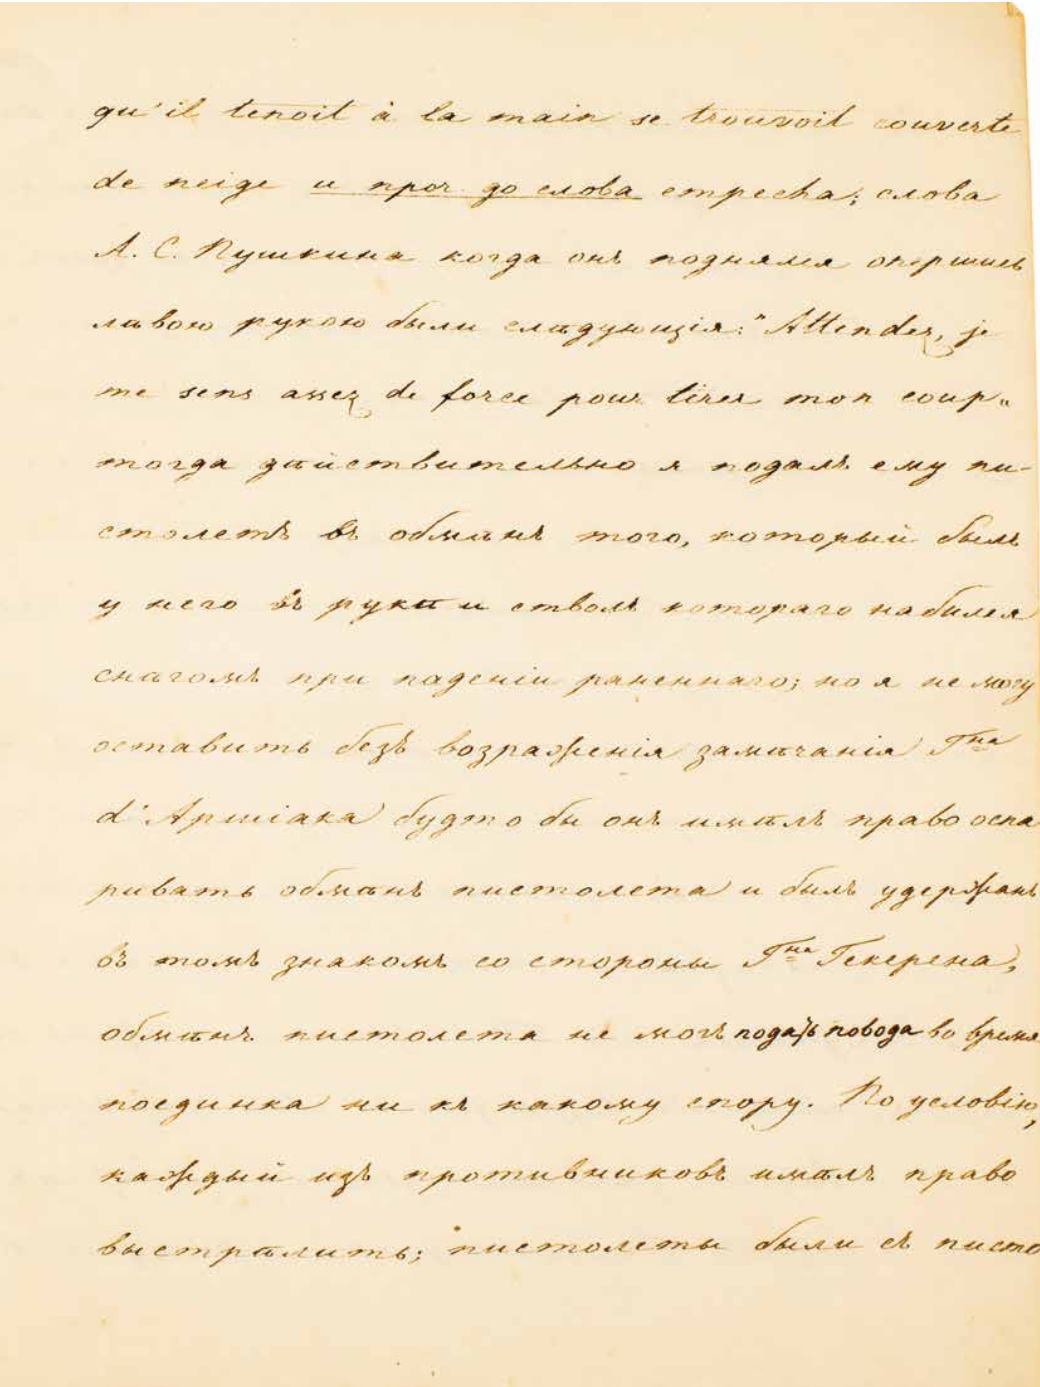 qu'il tenoit à la main se trouvoit couverte
de neige и проч. до слова стреска; слова
А. С. Пушкина когда онъ поднялся опершись
лѣвою рукою были слѣдующія: "Attendez, je
me sens assez de force pour tirer mon coup"
тогда дѣйствительно я подалъ ему пи-
столетъ въ обмѣнъ того, который былъ
у него въ руки и стволъ котораго набился
снѣгомъ при паденіи раненнаго; но я не могу
оставить безъ возраженія замѣчанія Гна
d'Аршіака будто бы онъ имѣлъ право оспа
ривать обмѣнъ пистолета и былъ удержанъ
въ томъ знакомъ со стороны Гна Гекерена,
обмѣнъ пистолета не могъ подать повода во время
поединка ни къ какому спору. По условію,
каждый изъ противниковъ имѣлъ право
выстрѣлить; пистолеты были съ писто